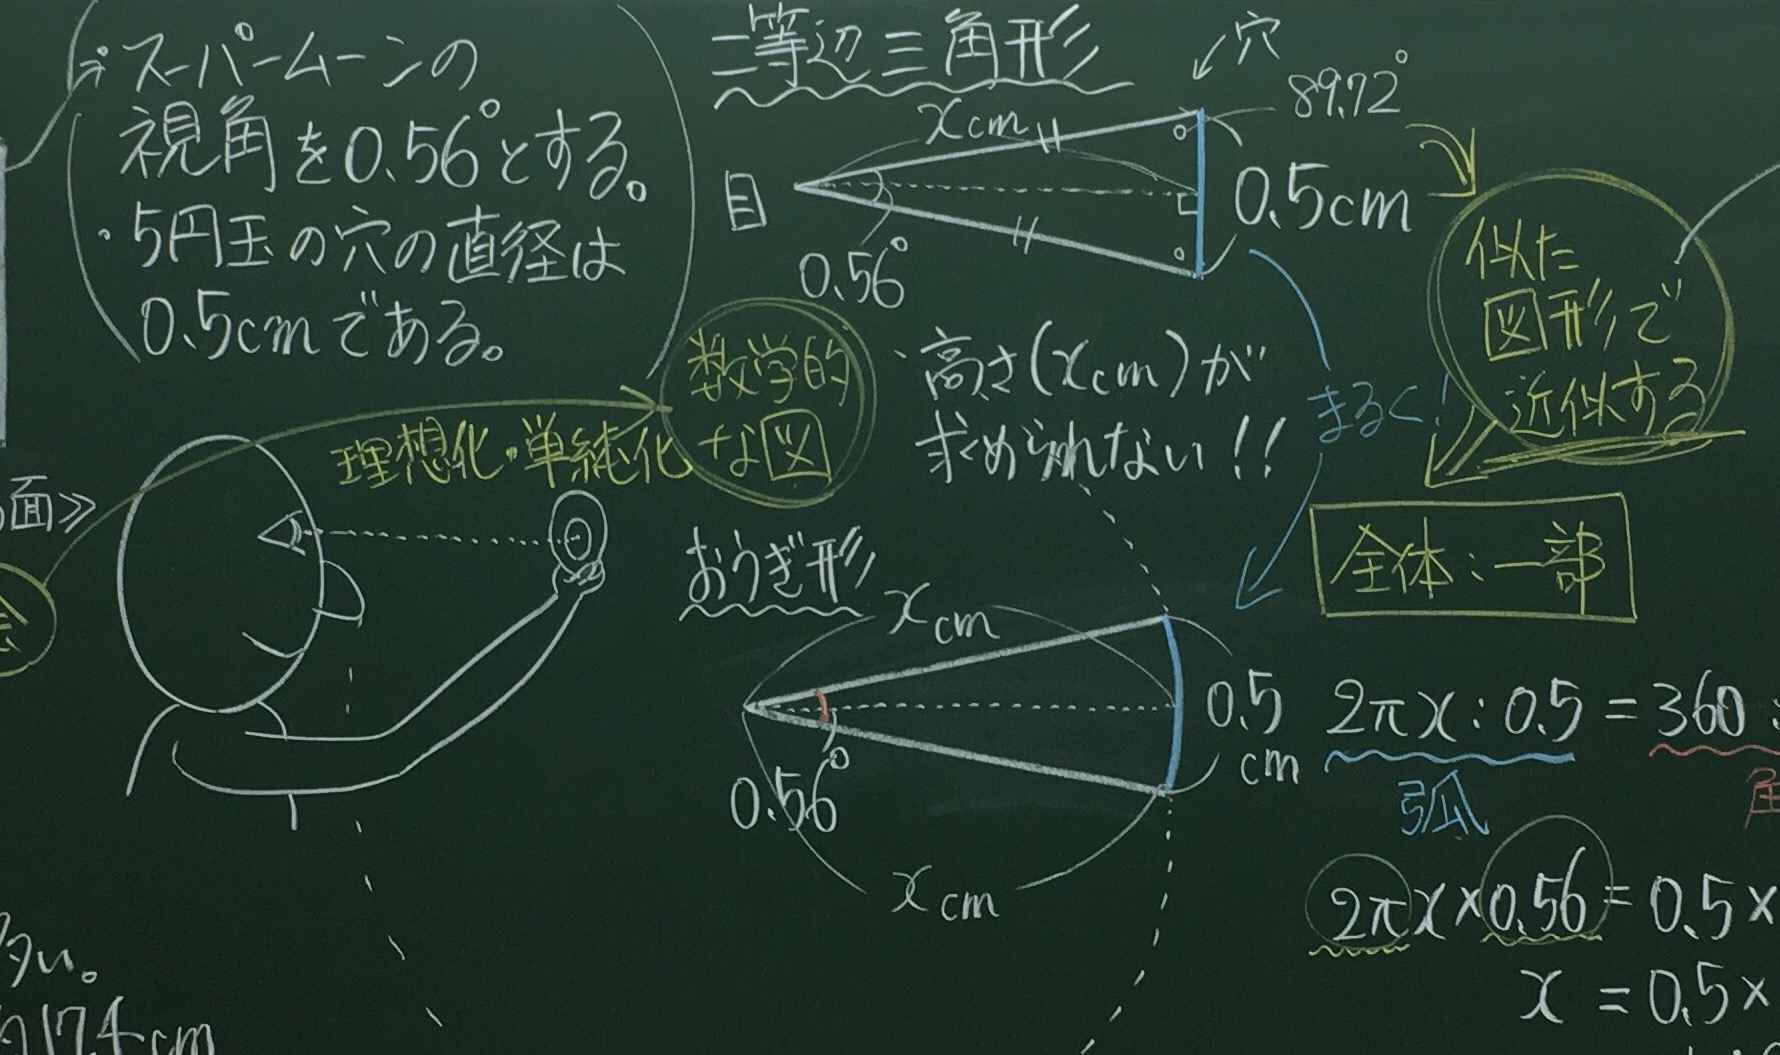 ・スーパームーンの
視角を0.56°とする。
・5円玉の穴の直径は
0.5cmである。
理想化・単純化
数学的
な図
面≫
多い。
17.4cm
二等辺三角形
穴
89.72°
xcm
目
0.5cm
0.56°
・高さ(xcm)が
求められない!!
まるく!
似た
図形で
近似する
全体:一部
おうぎ形
xcm
0.5
cm
0.56°
xcm
2πx:0.5=360:
弧
角
2πx×0.56=0.5×
x=0.5×